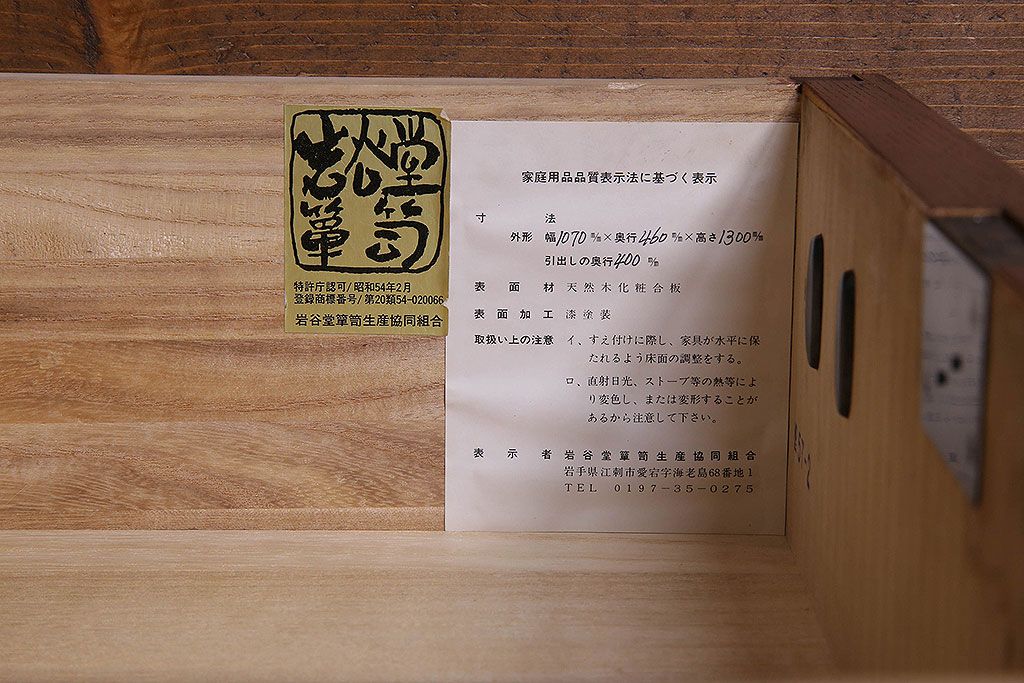 岩谷堂
簞笥
特許庁認可/昭和54年2月
登録商標番号/第20類54-020066
岩谷堂簞笥生産協同組合
家庭用品品質表示法に基づく表示
寸 法
外形 幅1070㎜×奥行460㎜×高さ1300㎜
引出しの奥行400㎜
表面材 天然木化粧合板
表面加工 漆塗装
取扱い上の注意 イ、すえ付けに際し、家具が水平に保
たれるよう床面の調整をする。
ロ、直射日光、ストーブ等の熱等によ
り変色し、または変形することが
あるから注意して下さい。
表示者 岩谷堂簞笥生産協同組合
岩手県江刺市愛宕字海老島68番地1
TEL 0197-35-0275